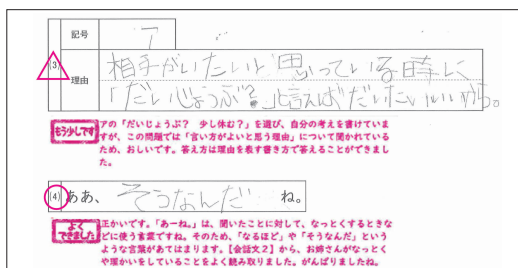 記号 ア
(3)
理由 相手がいたいと思っている時に
「だいじょうぶ?」と言えばだいたいいいから。
もう少しです アの「だいじょうぶ? 少し休む?」を選び、自分の考えを書けていま
すが、この問題では「言い方がよいと思う理由」について聞かれている
ため、おしいです。答え方は理由を表す書き方で答えることができまし
た。
(4) ああ、そうなんだ ね。
よくできました 正かいです。「あーね。」は、聞いたことに対して、なっとくするときな
どに使う言葉ですね。そのため、「なるほど」や「そうなんだ」という
ような言葉があてはまります。【会話文2】から、お姉さんがなっとく
や理かいをしていることをよく読み取りました。がんばりましたね。